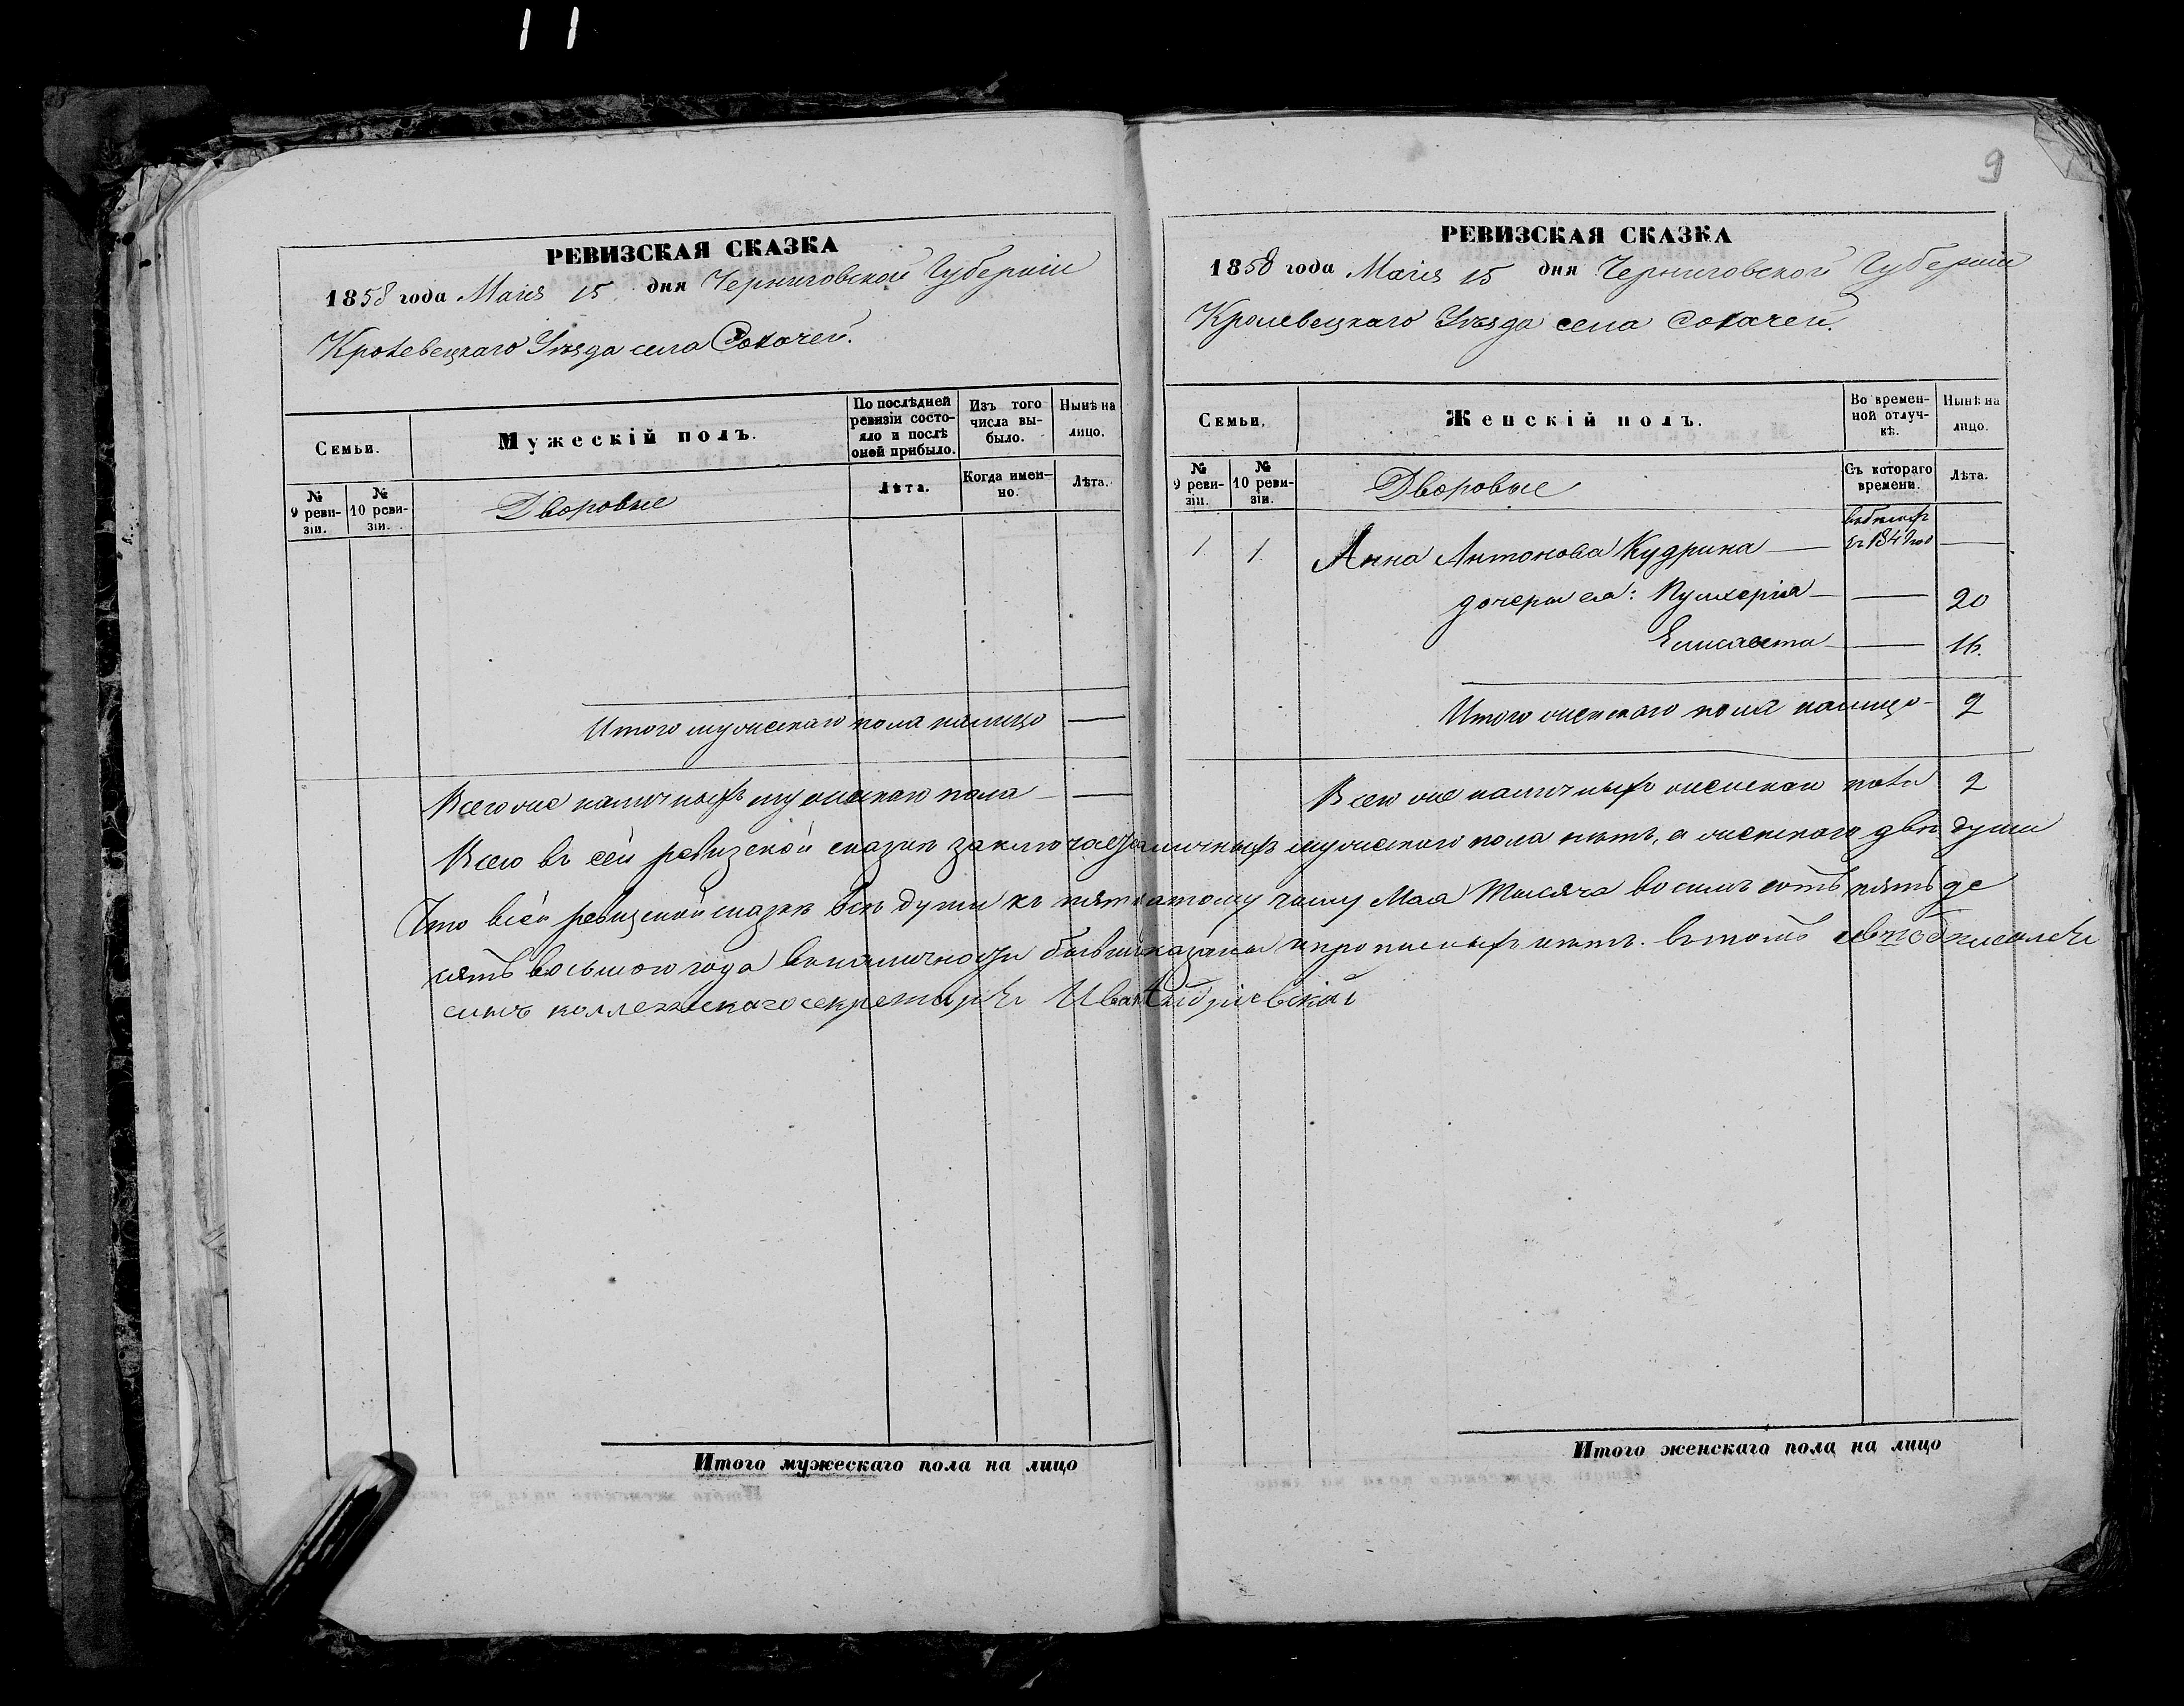 11
РЕВИЗСКАЯ СКАЗКА
1858 года Маія 15 дня Черниговской Губерніи
Кролевецкаго Уѣзда села Собичей.
Семьи.
Мужескій полъ.
По послѣдней ревизіи состояло и послѣ оной прибыло.
Изъ того числа выбыло.
Нынѣ на лицо.
№ 9 ревизіи.
№ 10 ревизіи.
Дворовые
Лѣта.
Когда именно.
Лѣта.
Итого мужескаго пола налицо —
Всего же наличныхъ мужескаго пола —
Итого мужескаго пола на лицо
9
РЕВИЗСКАЯ СКАЗКА
1858 года Маія 15 дня Черниговской Губерніи
Кролевецкаго Уѣзда села
Семьи.
Женскій полъ.
Во временной отлучкѣ.
Нынѣ на лицо.
№ 9 ревизіи.
№ 10 ревизіи.
Дворовые
Съ котораго времени.
Лѣта.
1 1 Анна Антонова Кудрина — —
дочери ея: Пульхерія — — 20
Елисавета — — 16.
Итого женскаго пола налицо — 2
Всего же наличныхъ женскаго пола 2
Всего въ сей ревизской сказкѣ наличныхъ мужескаго пола нѣтъ, а женскаго двѣ души
Что въ сей ревизской сказкѣ всѣ души къ пятнатому числу Мая тысяча восимъ сотъ пятьде
сятъ восьмого года въ наличности бывши показаны и прописныхъ нѣтъ. въ томъ подписался
сынъ коллежскаго секретаря Иванъ
Итого женскаго пола на лицо